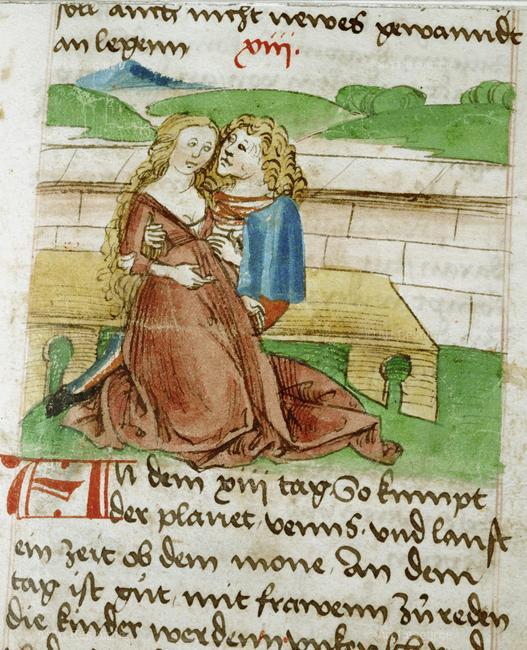 soll auch nicht newes gewanndt
an legenn xiii.
An dem xiii tag So kumpt
der planet venus und laufft
ein zeit ob dem mone An dem
tag ist gut mit frawenn zu reden
die kinder werdenn unkeusch